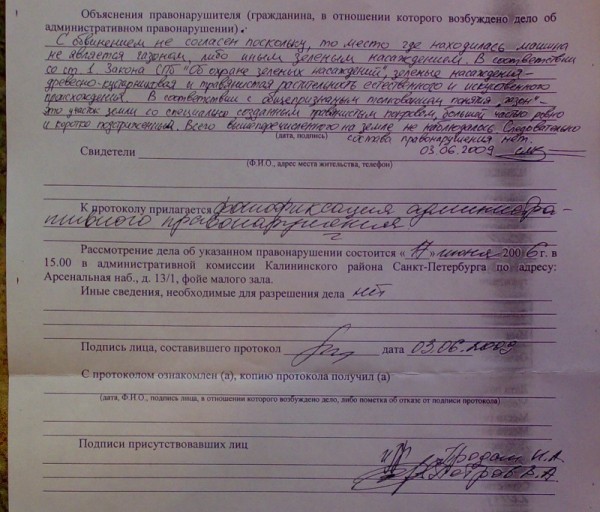 Объяснения правонарушителя (гражданина, в отношении которого возбуждено дело об
административном правонарушении).
С обвинением не согласен поскольку, то место где находилась машина
не является газоном, либо иным зеленым насаждением. В соответствии
со ст. 1 Закона СПб "Об охране зеленых насаждений", зеленые насаждения -
древесно-кустарниковая и травянистая растительность естественного и искусственного
происхождения. В соответствии с общепризнанным толкованием понятия "газон" -
это участок земли со специально созданным травянистым покровом, большей частью ровно
и коротко подстриженным. Всего вышеперечисленного на земле не наблюдалось. Следовательно
(дата, подпись) состава правонарушения нет.
Свидетели 03.06.2009
(Ф.И.О., адрес места жительства, телефон)
К протоколу прилагается фотофиксация администра-
тивного правонарушения
Рассмотрение дела об указанном правонарушении состоится « 17 » июня 2006 г. в
15.00 в административной комиссии Калининского района Санкт-Петербурга по адресу:
Арсенальная наб., д. 13/1, фойе малого зала.
Иные сведения, необходимые для разрешения дела нет
Подпись лица, составившего протокол дата 03.06.2009
С протоколом ознакомлен (а), копию протокола получил (а)
(дата, Ф.И.О., подпись лица, в отношении которого возбуждено дело, либо пометка об отказе от подписи протокола)
Подписи присутствовавших лиц